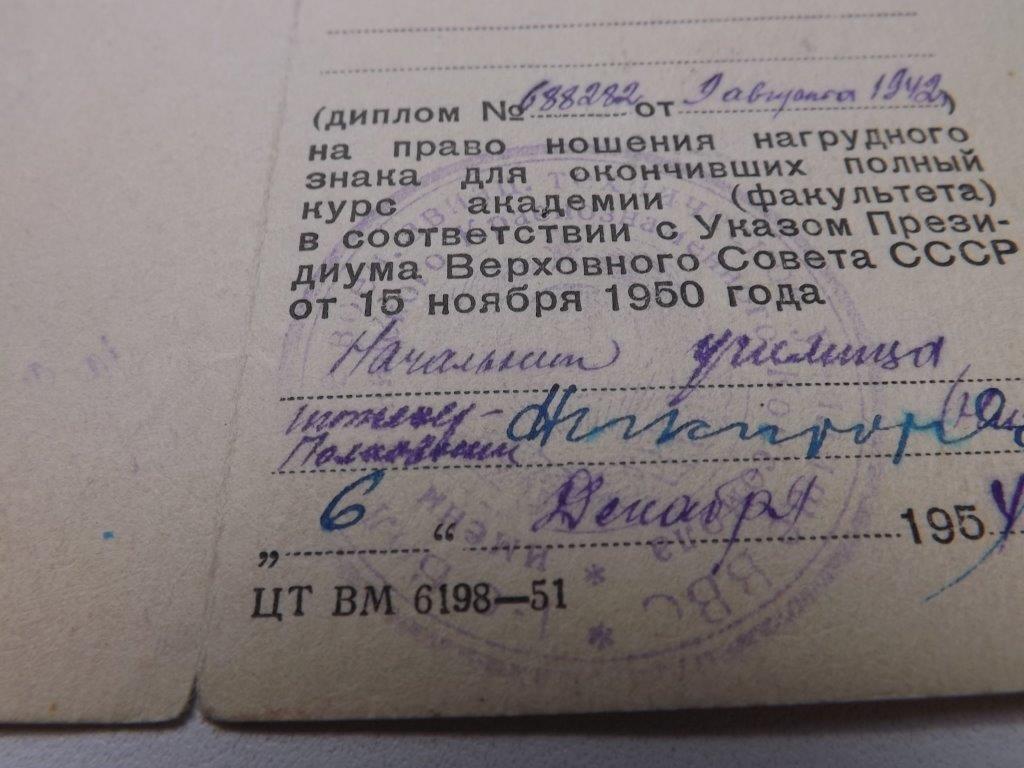 (диплом № 688282 от 9 августа 1942)
на право ношения нагрудного
знака для окончивших полный
курс академии (факультета)
в соответствии с Указом Прези-
диума Верховного Совета СССР
от 15 ноября 1950 года
Начальник училища
инженер-
Полковник
„6“ Декабря 1954
ЦТ ВМ 6198—51
имени
ВВС